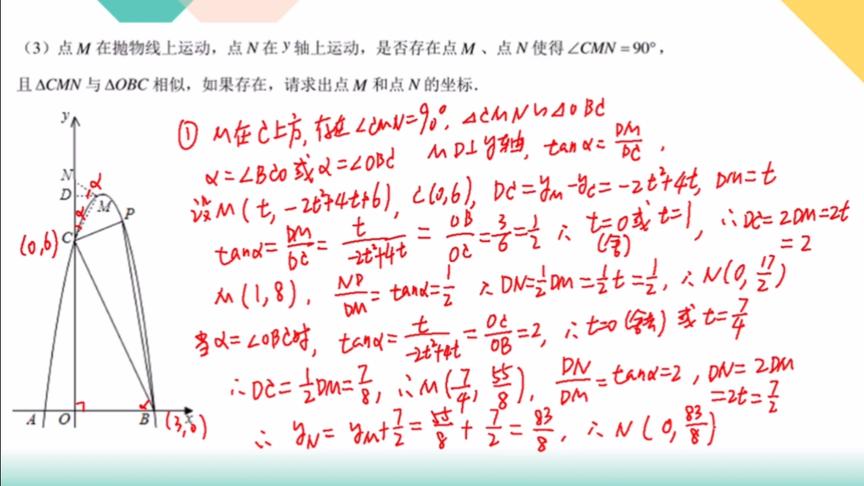 （3）点 M 在抛物线上运动，点 N 在 y 轴上运动，是否存在点 M 、点 N 使得 ∠CMN = 90°，
且 ΔCMN 与 ΔOBC 相似，如果存在，请求出点 M 和点 N 的坐标.
① M在C上方, 存在∠CMN=90°, △CMN∽△OBC
α=∠BCO 或 α=∠OBC MD⊥y轴, tanα=DM/DC,
设M(t, -2t²+4t+6), C(0,6), DC=y_M-y_C=-2t²+4t, DM=t
tanα=DM/DC=t/(-2t²+4t)=OB/OC=3/6=1/2 ∴ t=0(舍)或t=1, ∴DC=2DM=2t
=2
M(1,8), ND/DM=tanα=1/2 ∴DN=1/2DM=1/2t=1/2, ∴N(0,17/2)
当α=∠OBC时, tanα=t/(-2t²+4t)=OC/OB=2, ∴t=0(舍去)或t=7/4
∴DC=1/2DM=7/8, ∴M(7/4, 55/8), DN/DM=tanα=2, DN=2DM
=2t=7/2
∴ y_N=y_M+7/2=55/8+7/2=83/8, ∴N(0, 83/8)
y
N
D
α
M
P
α
(0,6)
C
A
O
B
x
(3,0)